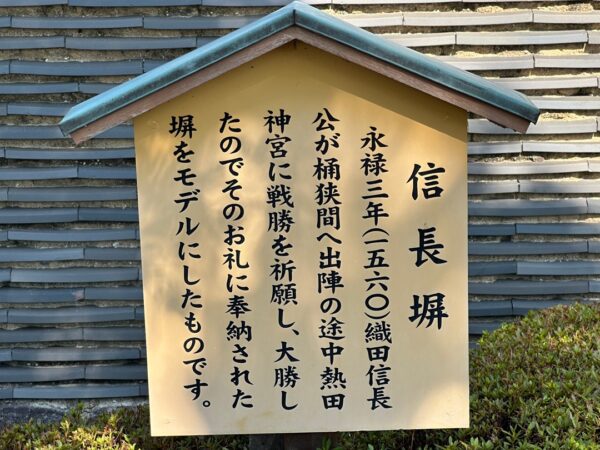 信長塀
永禄三年(一五六〇)織田信長
公が桶狭間へ出陣の途中熱田
神宮に戦勝を祈願し、大勝し
たのでそのお礼に奉納された
塀をモデルにしたものです。